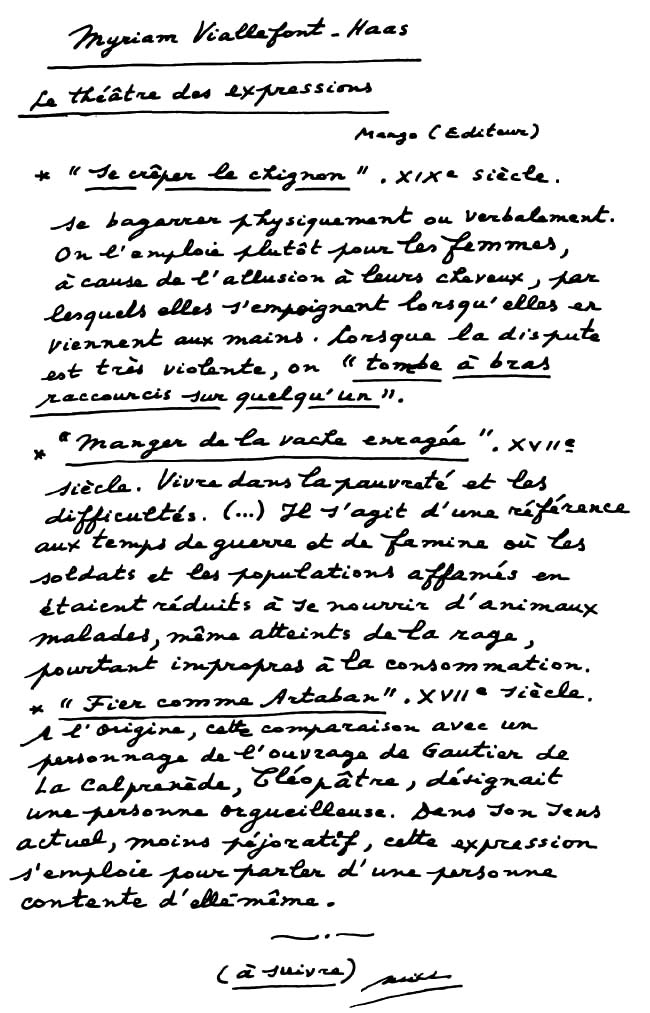 Myriam Viallefont-Haas
Le théâtre des expressions
Mango (Editeur)
* "Se crêper le chignon". XIXe siècle.
Se bagarrer physiquement ou verbalement.
On l'emploie plutôt pour les femmes,
à cause de l'allusion à leurs cheveux, par
lesquels elles s'empoignent lorsqu'elles en
viennent aux mains. Lorsque la dispute
est très violente, on "tombe à bras
raccourcis sur quelqu'un".
* "Manger de la vache enragée". XVIIe
siècle. Vivre dans la pauvreté et les
difficultés. (...) Il s'agit d'une référence
aux temps de guerre et de famine où les
soldats et les populations affamés en
étaient réduits à se nourrir d'animaux
malades, même atteints de la rage,
pourtant impropres à la consommation.
* "Fier comme Artaban". XVIIe siècle.
A l'origine, cette comparaison avec un
personnage de l'ouvrage de Gautier de
La Calprenède, Cléopâtre, désignait
une personne orgueilleuse. Dans son sens
actuel, moins péjoratif, cette expression
s'emploie pour parler d'une personne
contente d'elle-même.
(à suivre)